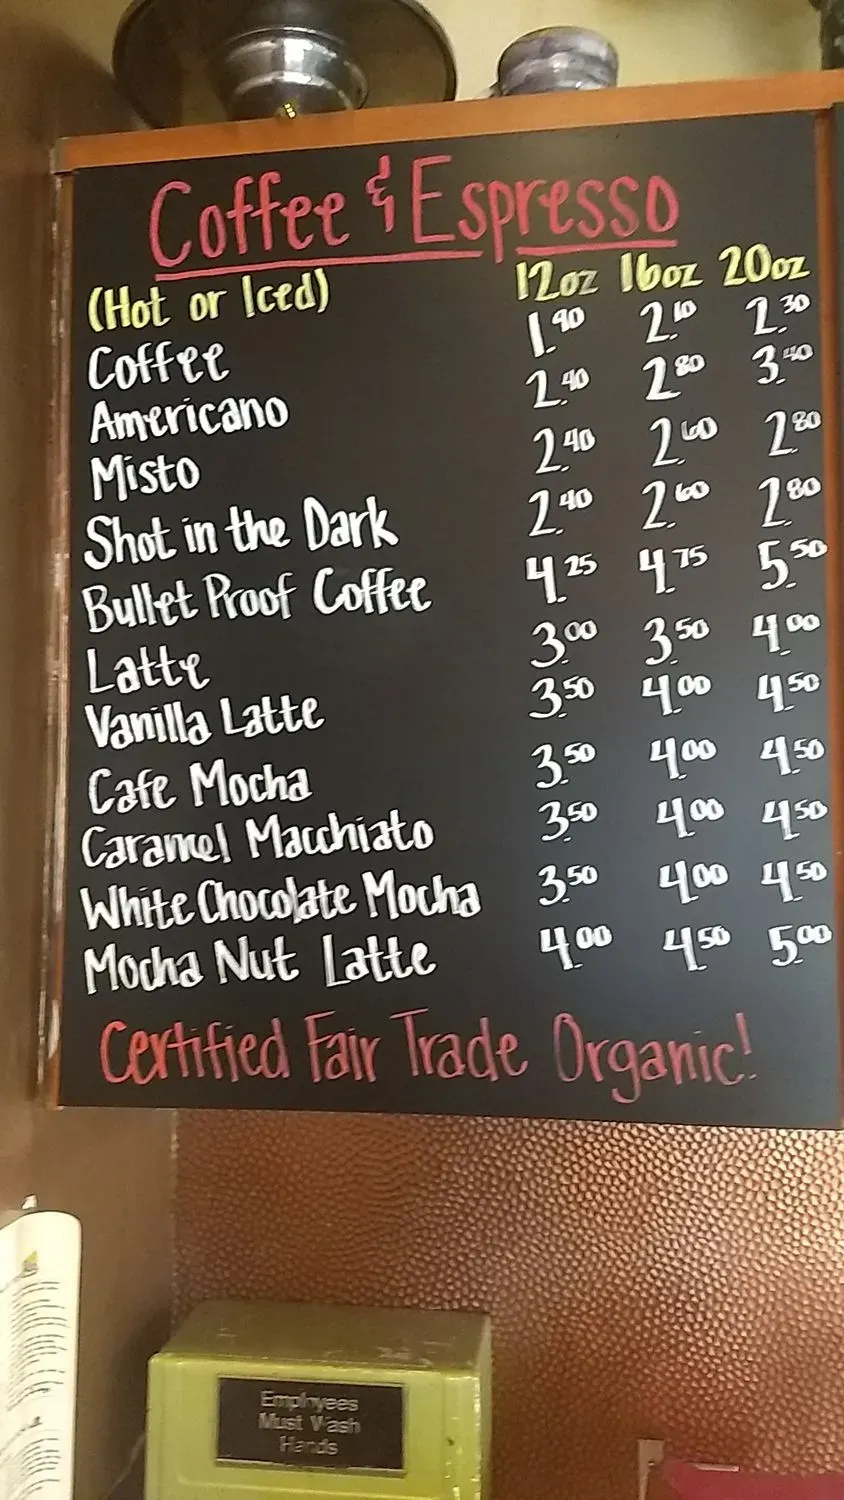 Coffee & Espresso
(Hot or Iced) 12oz 16oz 20oz
Coffee 1.90 2.10 2.30
Americano 2.40 2.80 3.40
Misto 2.40 2.60 2.80
Shot in the Dark 2.40 2.60 2.80
Bullet Proof Coffee 4.25 4.75 5.50
Latte 3.00 3.50 4.00
Vanilla Latte 3.50 4.00 4.50
Cafe Mocha 3.50 4.00 4.50
Caramel Macchiato 3.50 4.00 4.50
White Chocolate Mocha 3.50 4.00 4.50
Mocha Nut Latte 4.00 4.50 5.00
Certified Fair Trade Organic!
Employees
Must Wash
Hands